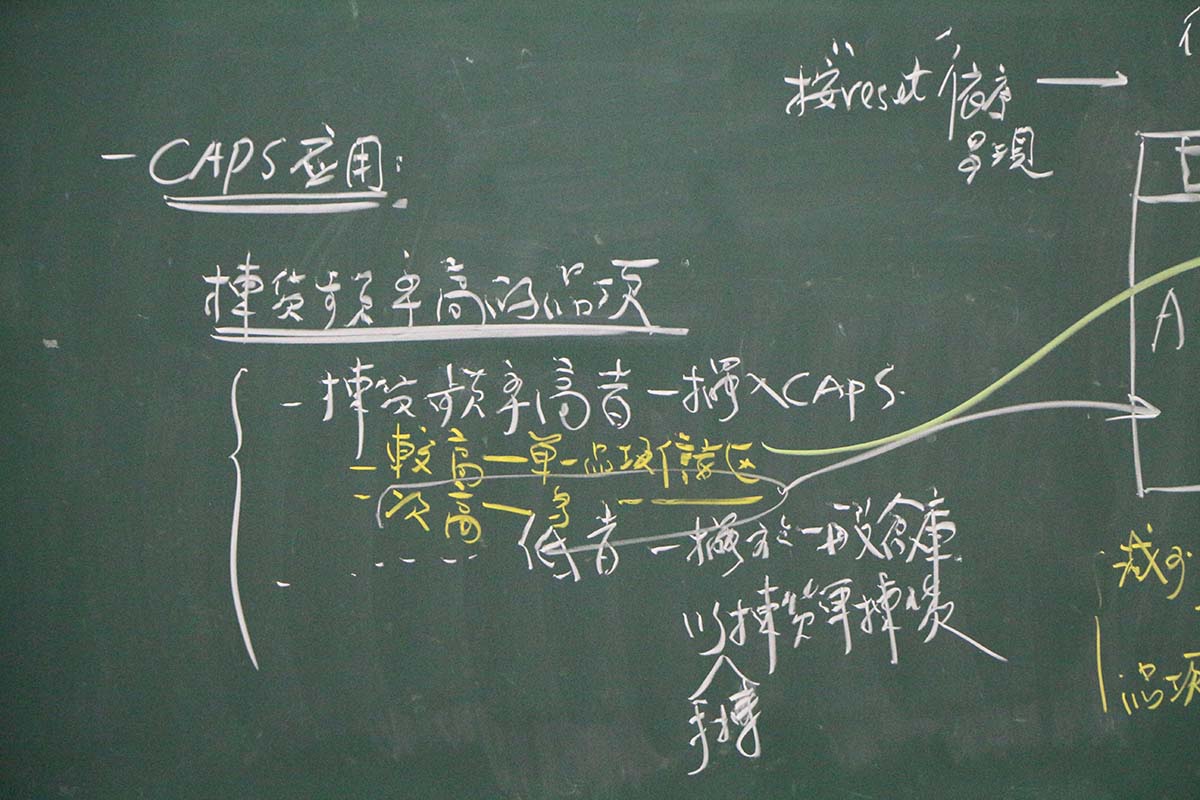 按"reset"依序
呈現
- CAPS应用:
揀貨頻率高的品項
- 揀貨頻率高者 - 擺入CAPS.
- 較高 - 單一品項儲區
- 次高 - 多 - ——
- ---- 低者 - 擺於一般倉庫
以揀貨單揀貨
手推
A
減少
品項